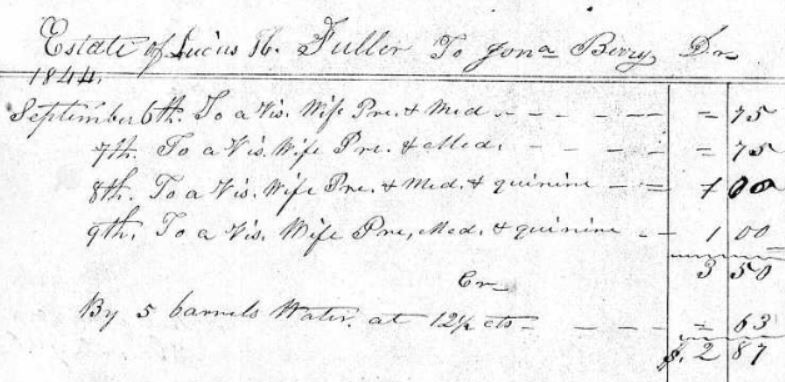 Estate of Lucius H. Fuller To Jona Berry Dr
1844.
September 6th. To a Vis. Wife Pre. & Med - - - - - = 75
7th. To a Vis. Wife Pre. & Med. - - - - - = 75
8th. To a Vis. Wife Pre. & Med. & quinine - = 1 00
9th. To a Vis. Wife Pre, Med. & quinine - - 1 00
3 50
Cr
By 5 barrels Water. at 12½ cts - - - - = 63
$. 2 87